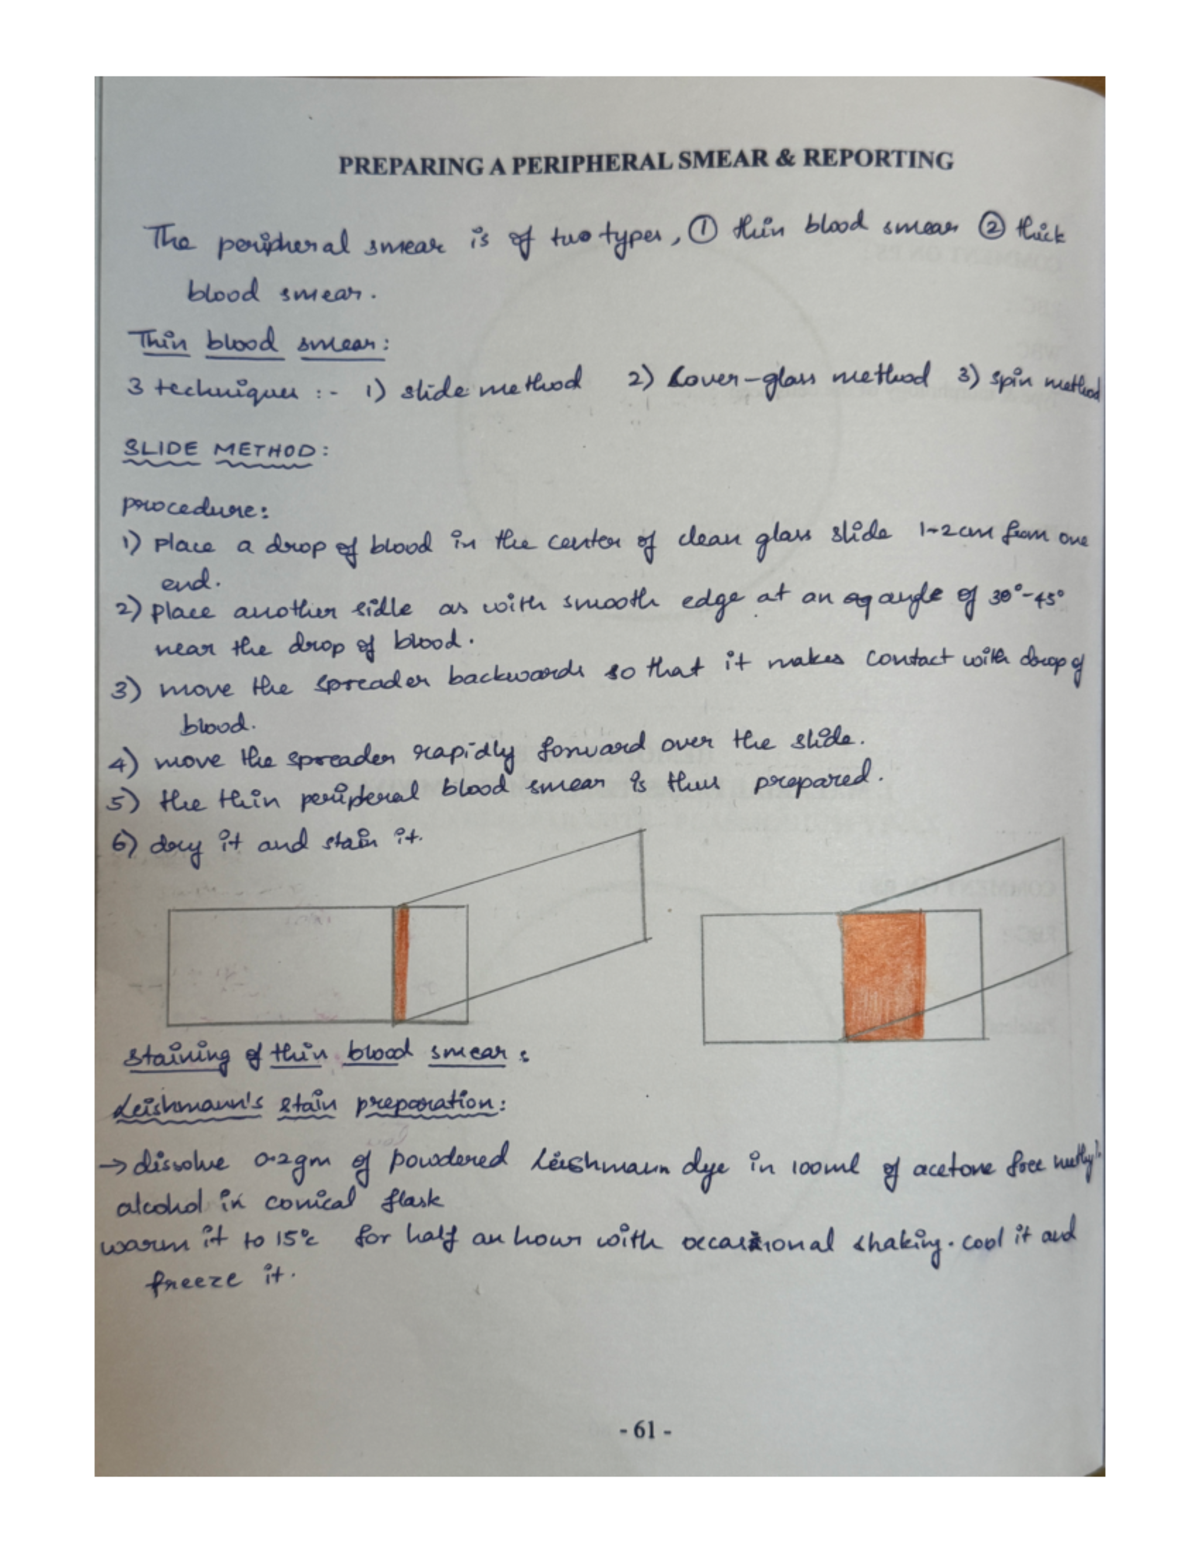 PREPARING A PERIPHERAL SMEAR & REPORTING
The peripheral smear is of two types, ① thin blood smear ② thick
blood smear.
Thin blood smear:
3 techniques :- 1) slide method 2) Cover-glass method 3) spin method
SLIDE METHOD:
procedure:
1) Place a drop of blood in the center of clean glass slide 1-2cm from one
end.
2) place another sidle as with smooth edge at an angle of 30°-45°
near the drop of blood.
3) move the spreader backwards so that it makes contact with drop of
blood.
4) move the spreader rapidly forward over the slide.
5) the thin peripteral blood smear is thus prepared.
6) dry it and stain it.
staining of thin blood smear:
Leishmann's stain preparation:
→ dissolve 0.2gm of powdered Leishmann dye in 100ml of acetone free methyl
alcohol in conical flask
warm it to 15°c for half an hour with occasional shaking. cool it and
freeze it.
- 61 -